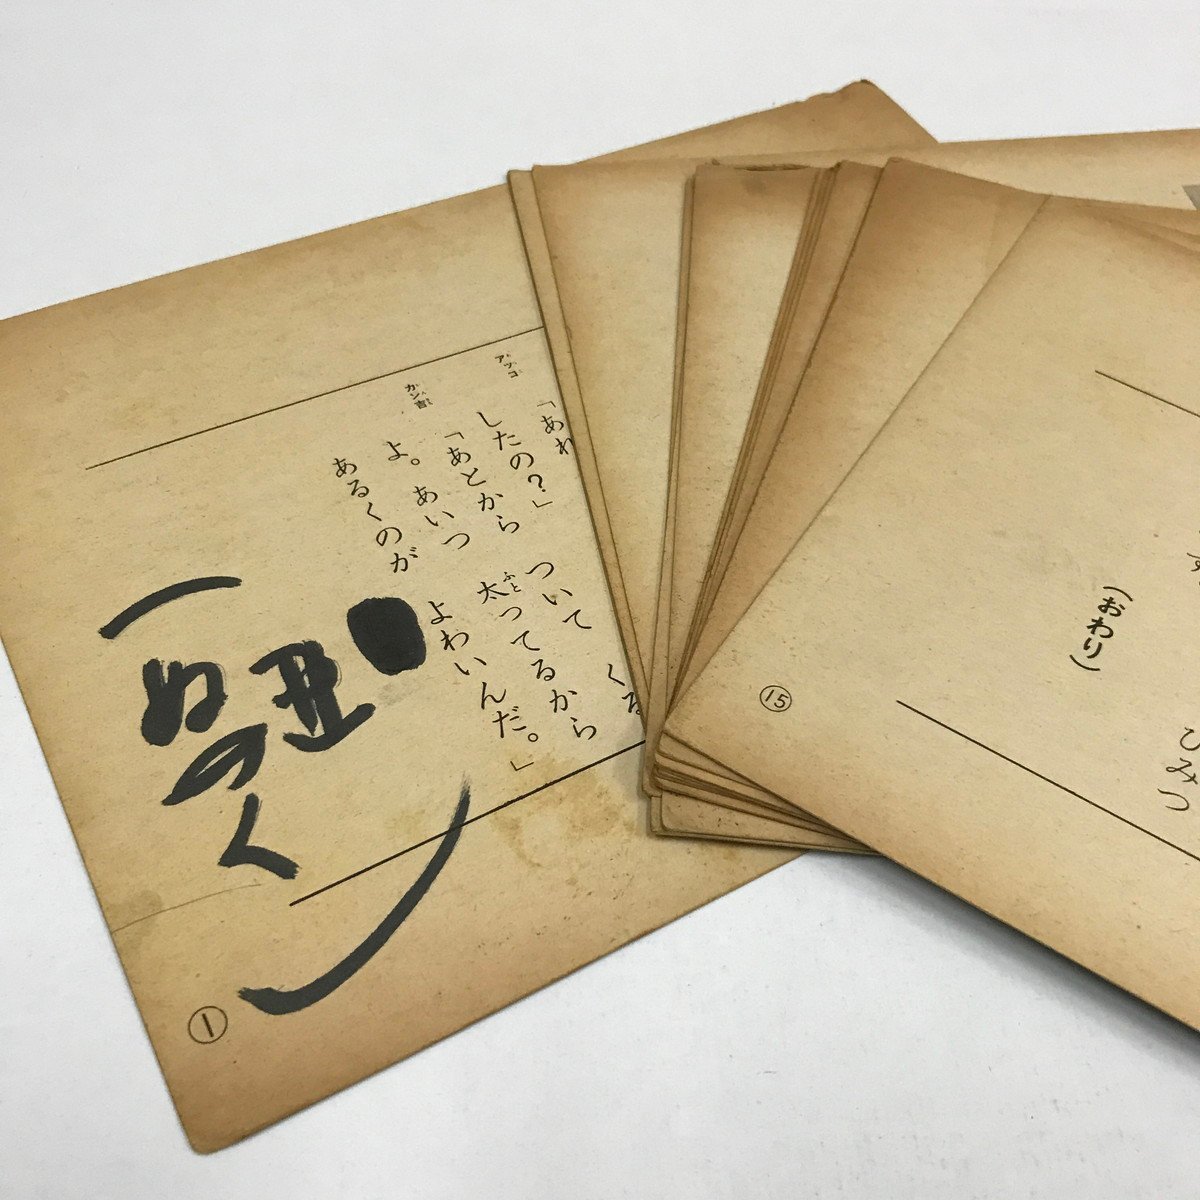 アツコ 「あれ
したの?」
カン吉 「あとから ついて くる
よ。あいつ 太ってるから
あるくのが よわいんだ。」
(ぬのく)
①
ひみつ
(おわり)
⑮